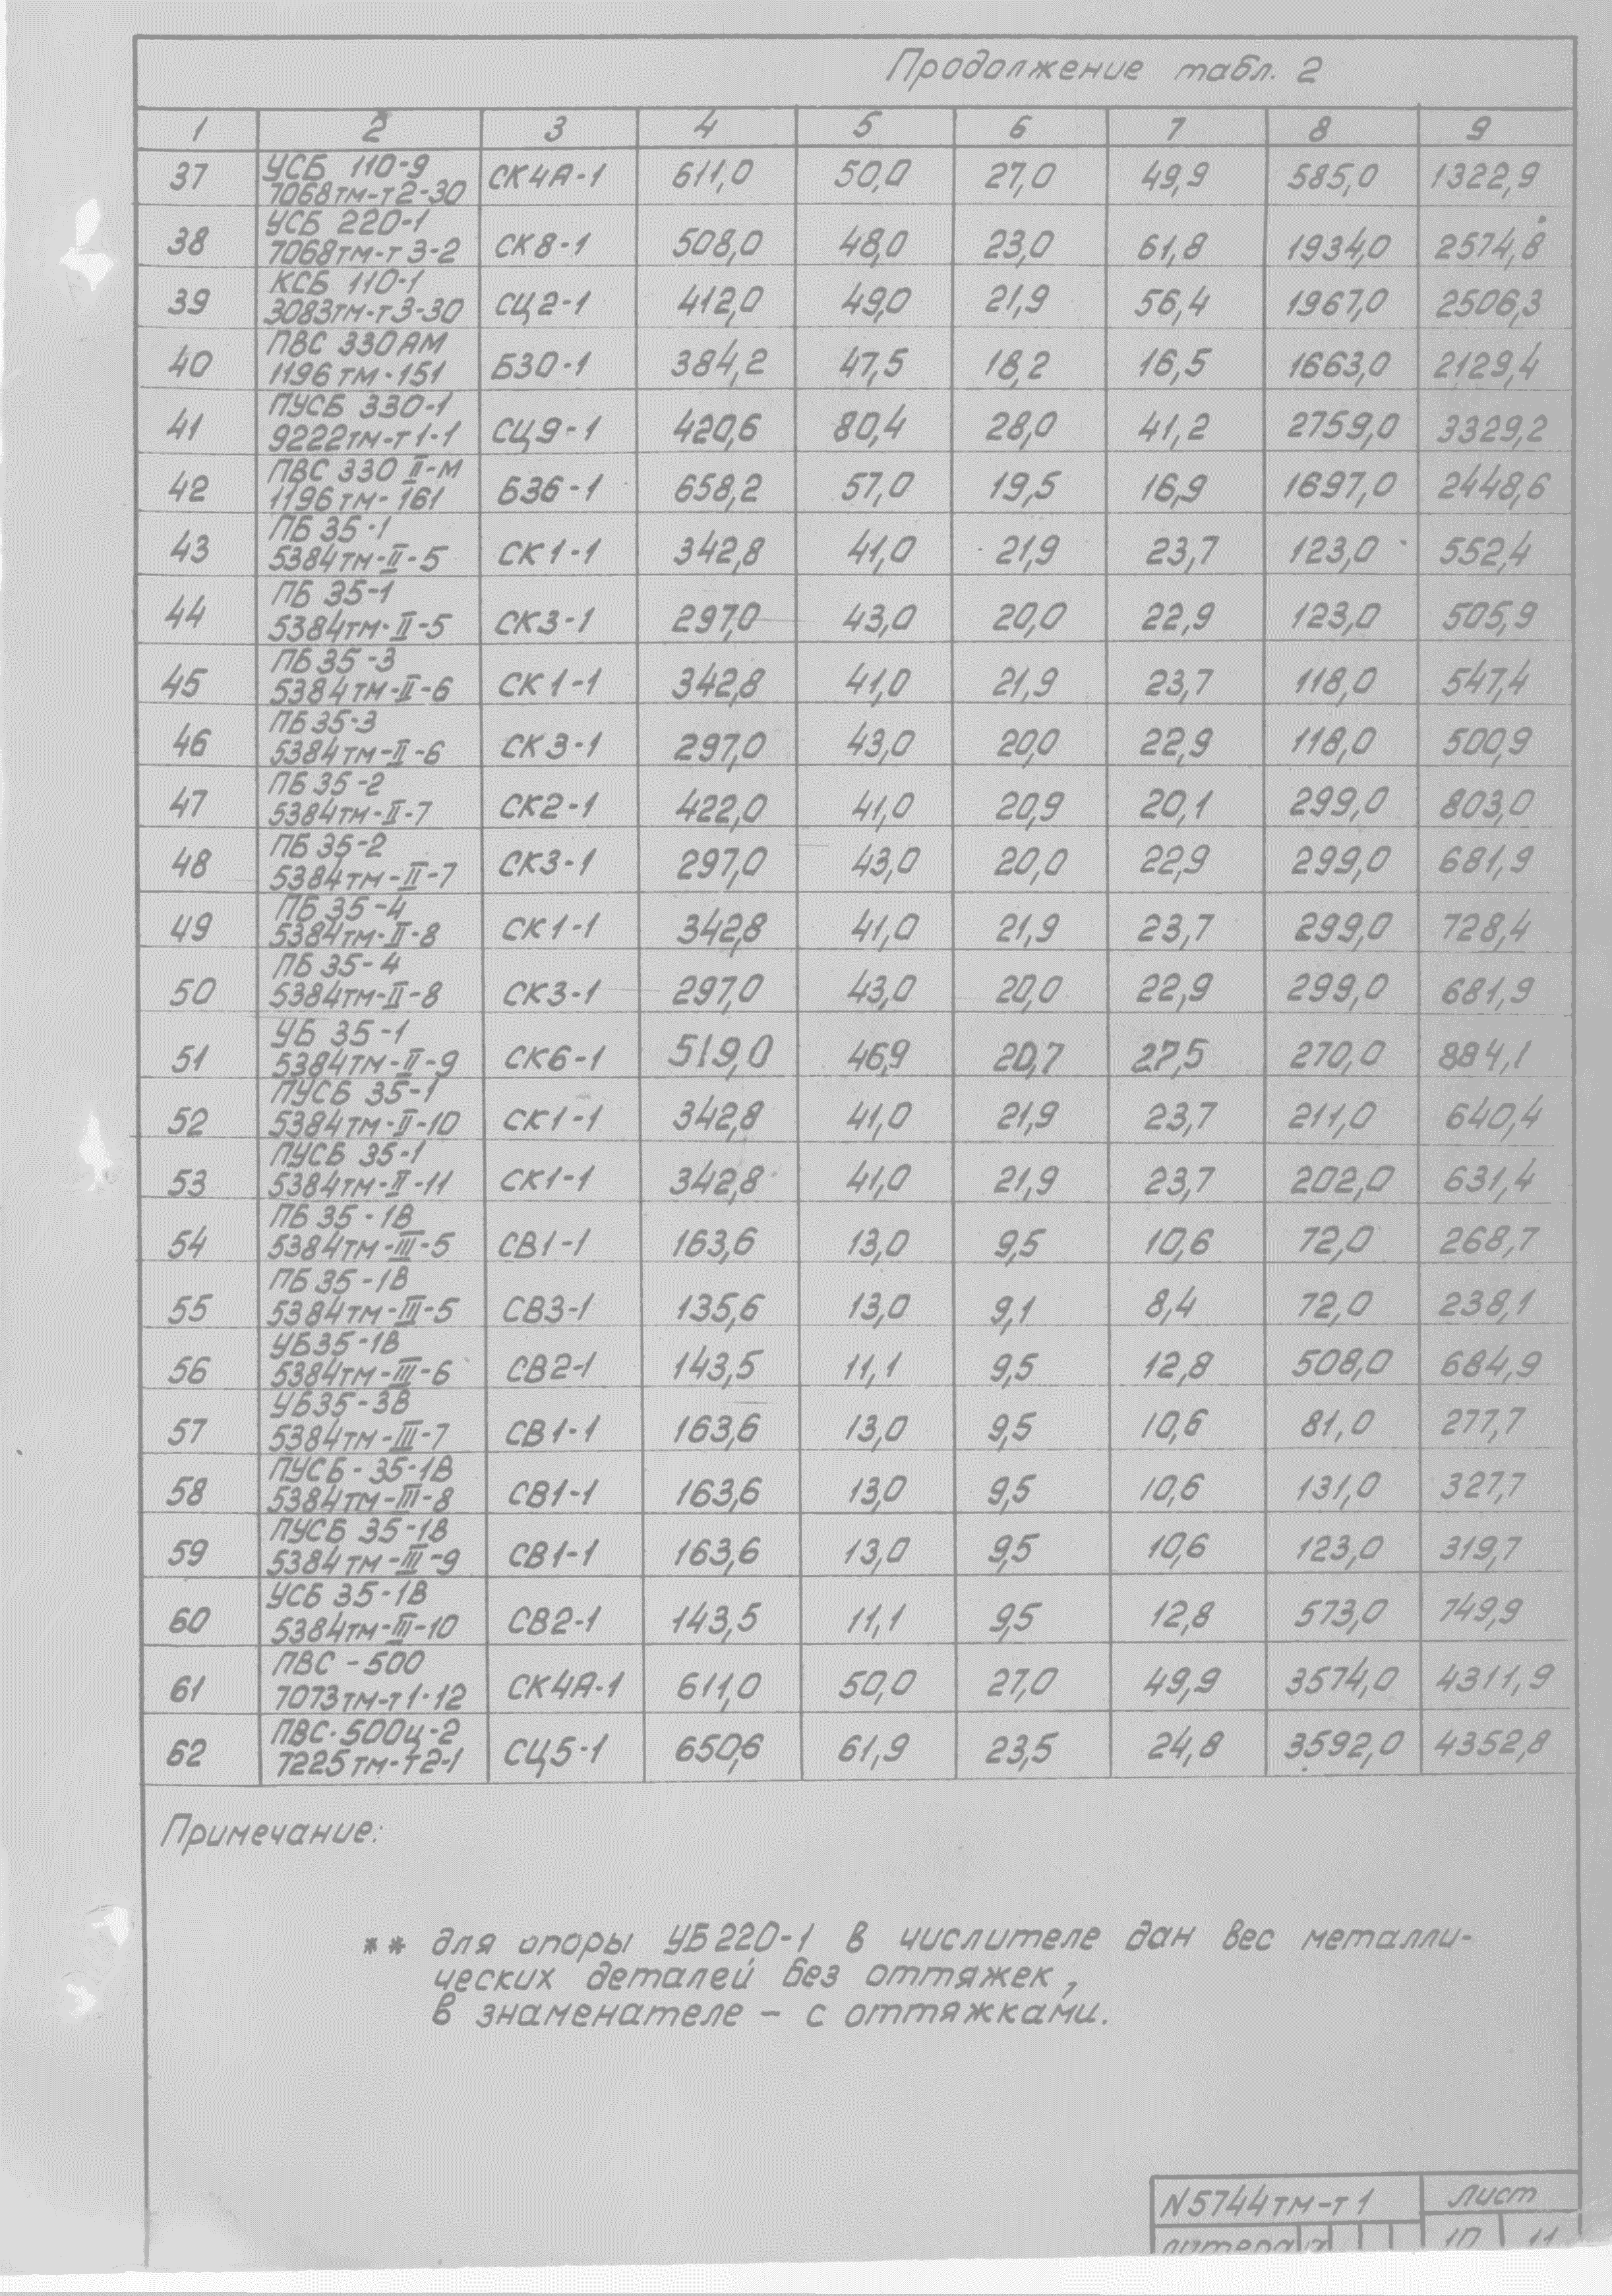 Продолжение табл. 2
1 2 3 4 5 6 7 8 9
37 УСБ 110-9 7068тм-т2-30 СК4А-1 611,0 50,0 27,0 49,9 585,0 1322,9
38 УСБ 220-1 7068тм-т3-2 СК8-1 508,0 48,0 23,0 61,8 1934,0 2574,8
39 КСБ 110-1 3083тм-т3-30 СЦ2-1 412,0 49,0 21,9 56,4 1967,0 2506,3
40 ПВС 330АМ 1196тм-151 Б30-1 384,2 47,5 18,2 16,5 1663,0 2129,4
41 ПУСБ 330-1 9222тм-т1-1 СЦ9-1 420,6 80,4 28,0 41,2 2759,0 3329,2
42 ПВС 330 II-М 1196тм-161 Б36-1 658,2 57,0 19,5 16,9 1697,0 2448,6
43 ПБ 35-1 5384тм-II-5 СК1-1 342,8 41,0 21,9 23,7 123,0 552,4
44 ПБ 35-1 5384тм-II-5 СК3-1 297,0 43,0 20,0 22,9 123,0 505,9
45 ПБ 35-3 5384тм-II-6 СК1-1 342,8 41,0 21,9 23,7 118,0 547,4
46 ПБ 35-3 5384тм-II-6 СК3-1 297,0 43,0 20,0 22,9 118,0 500,9
47 ПБ 35-2 5384тм-II-7 СК2-1 422,0 41,0 20,9 20,1 299,0 803,0
48 ПБ 35-2 5384тм-II-7 СК3-1 297,0 43,0 20,0 22,9 299,0 681,9
49 ПБ 35-4 5384тм-II-8 СК1-1 342,8 41,0 21,9 23,7 299,0 728,4
50 ПБ 35-4 5384тм-II-8 СК3-1 297,0 43,0 20,0 22,9 299,0 681,9
51 УБ 35-1 5384тм-II-9 СК6-1 519,0 46,9 20,7 27,5 270,0 884,1
52 ПУСБ 35-1 5384тм-II-10 СК1-1 342,8 41,0 21,9 23,7 211,0 640,4
53 ПУСБ 35-1 5384тм-II-11 СК1-1 342,8 41,0 21,9 23,7 202,0 631,4
54 ПБ 35-1В 5384тм-III-5 СВ1-1 163,6 13,0 9,5 10,6 72,0 268,7
55 ПБ 35-1В 5384тм-III-5 СВ3-1 135,6 13,0 9,1 8,4 72,0 238,1
56 УБ35-1В 5384тм-III-6 СВ2-1 143,5 11,1 9,5 12,8 508,0 684,9
57 УБ35-3В 5384тм-III-7 СВ1-1 163,6 13,0 9,5 10,6 81,0 277,7
58 ПУСБ-35-1В 5384тм-III-8 СВ1-1 163,6 13,0 9,5 10,6 131,0 327,7
59 ПУСБ 35-1В 5384тм-III-9 СВ1-1 163,6 13,0 9,5 10,6 123,0 319,7
60 УСБ 35-1В 5384тм-III-10 СВ2-1 143,5 11,1 9,5 12,8 573,0 749,9
61 ПВС-500 7073тм-т1-12 СК4А-1 611,0 50,0 27,0 49,9 3574,0 4311,9
62 ПВС-500ц-2 7225тм-т2-1 СЦ5-1 650,6 61,9 23,5 24,8 3592,0 4352,8
Примечание:
** для опоры УБ220-1 в числителе дан вес металли-
ческих деталей без оттяжек,
в знаменателе - с оттяжками.
N5744тм-т1 Лист
литера 10 11